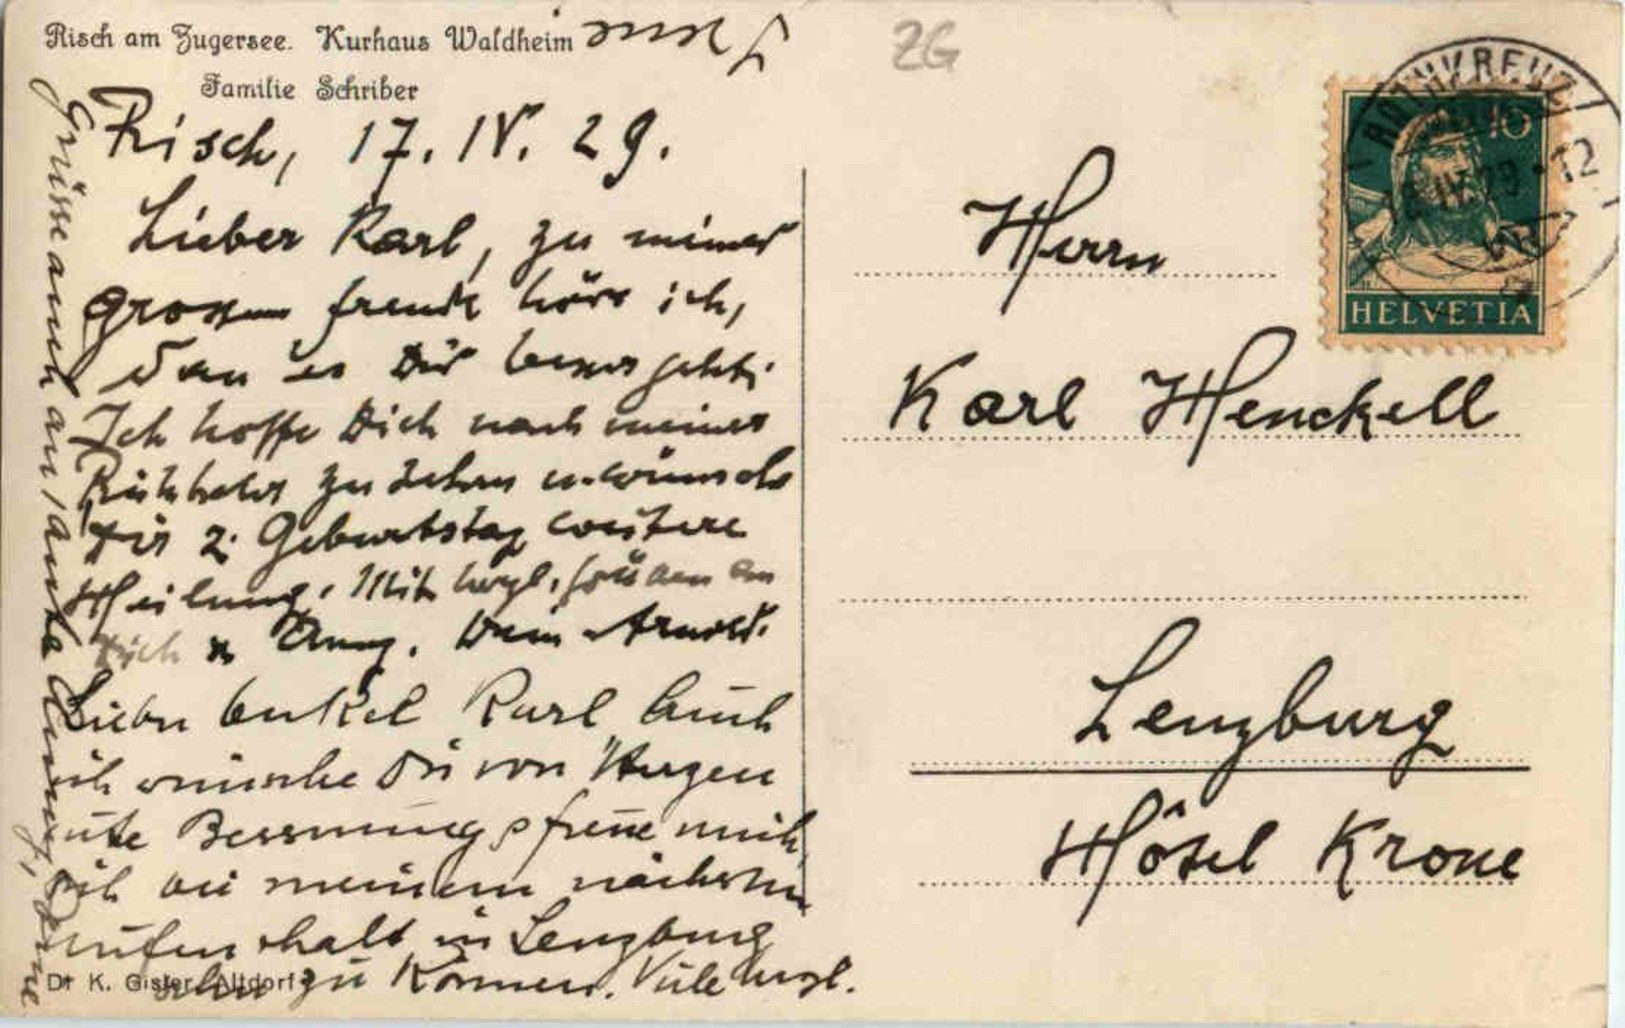 Risch am Zugersee. Kurhaus Waldheim
Familie Schriber
ZG
Risch, 17. IV. 29.
Lieber Karl, zu meiner
grossen Freude höre ich,
dass es Dir besser geht.
Ich hoffe Dich nach meiner
Rückkehr zu sehen u. wünsche
Dir z. Geburtstag weitere
Heilung. Mit herzl. Grüssen an
Dich u. Anny. Dein Arnold.
Lieber Onkel Karl, Auch
ich wünsche Dir von Herzen
gute Besserung & freue mich,
Dich bei meinem nächsten
Aufenthalt in Lenzburg
sehn zu können. Viele herzl.
Grüsse auch an Tante Anny, Deine
Dr K. Gisler, Altdorf
Herrn
Karl Henckell
Lenzburg
Hôtel Krone
ROTHKREUZ
IV.29-12
10
HELVETIA